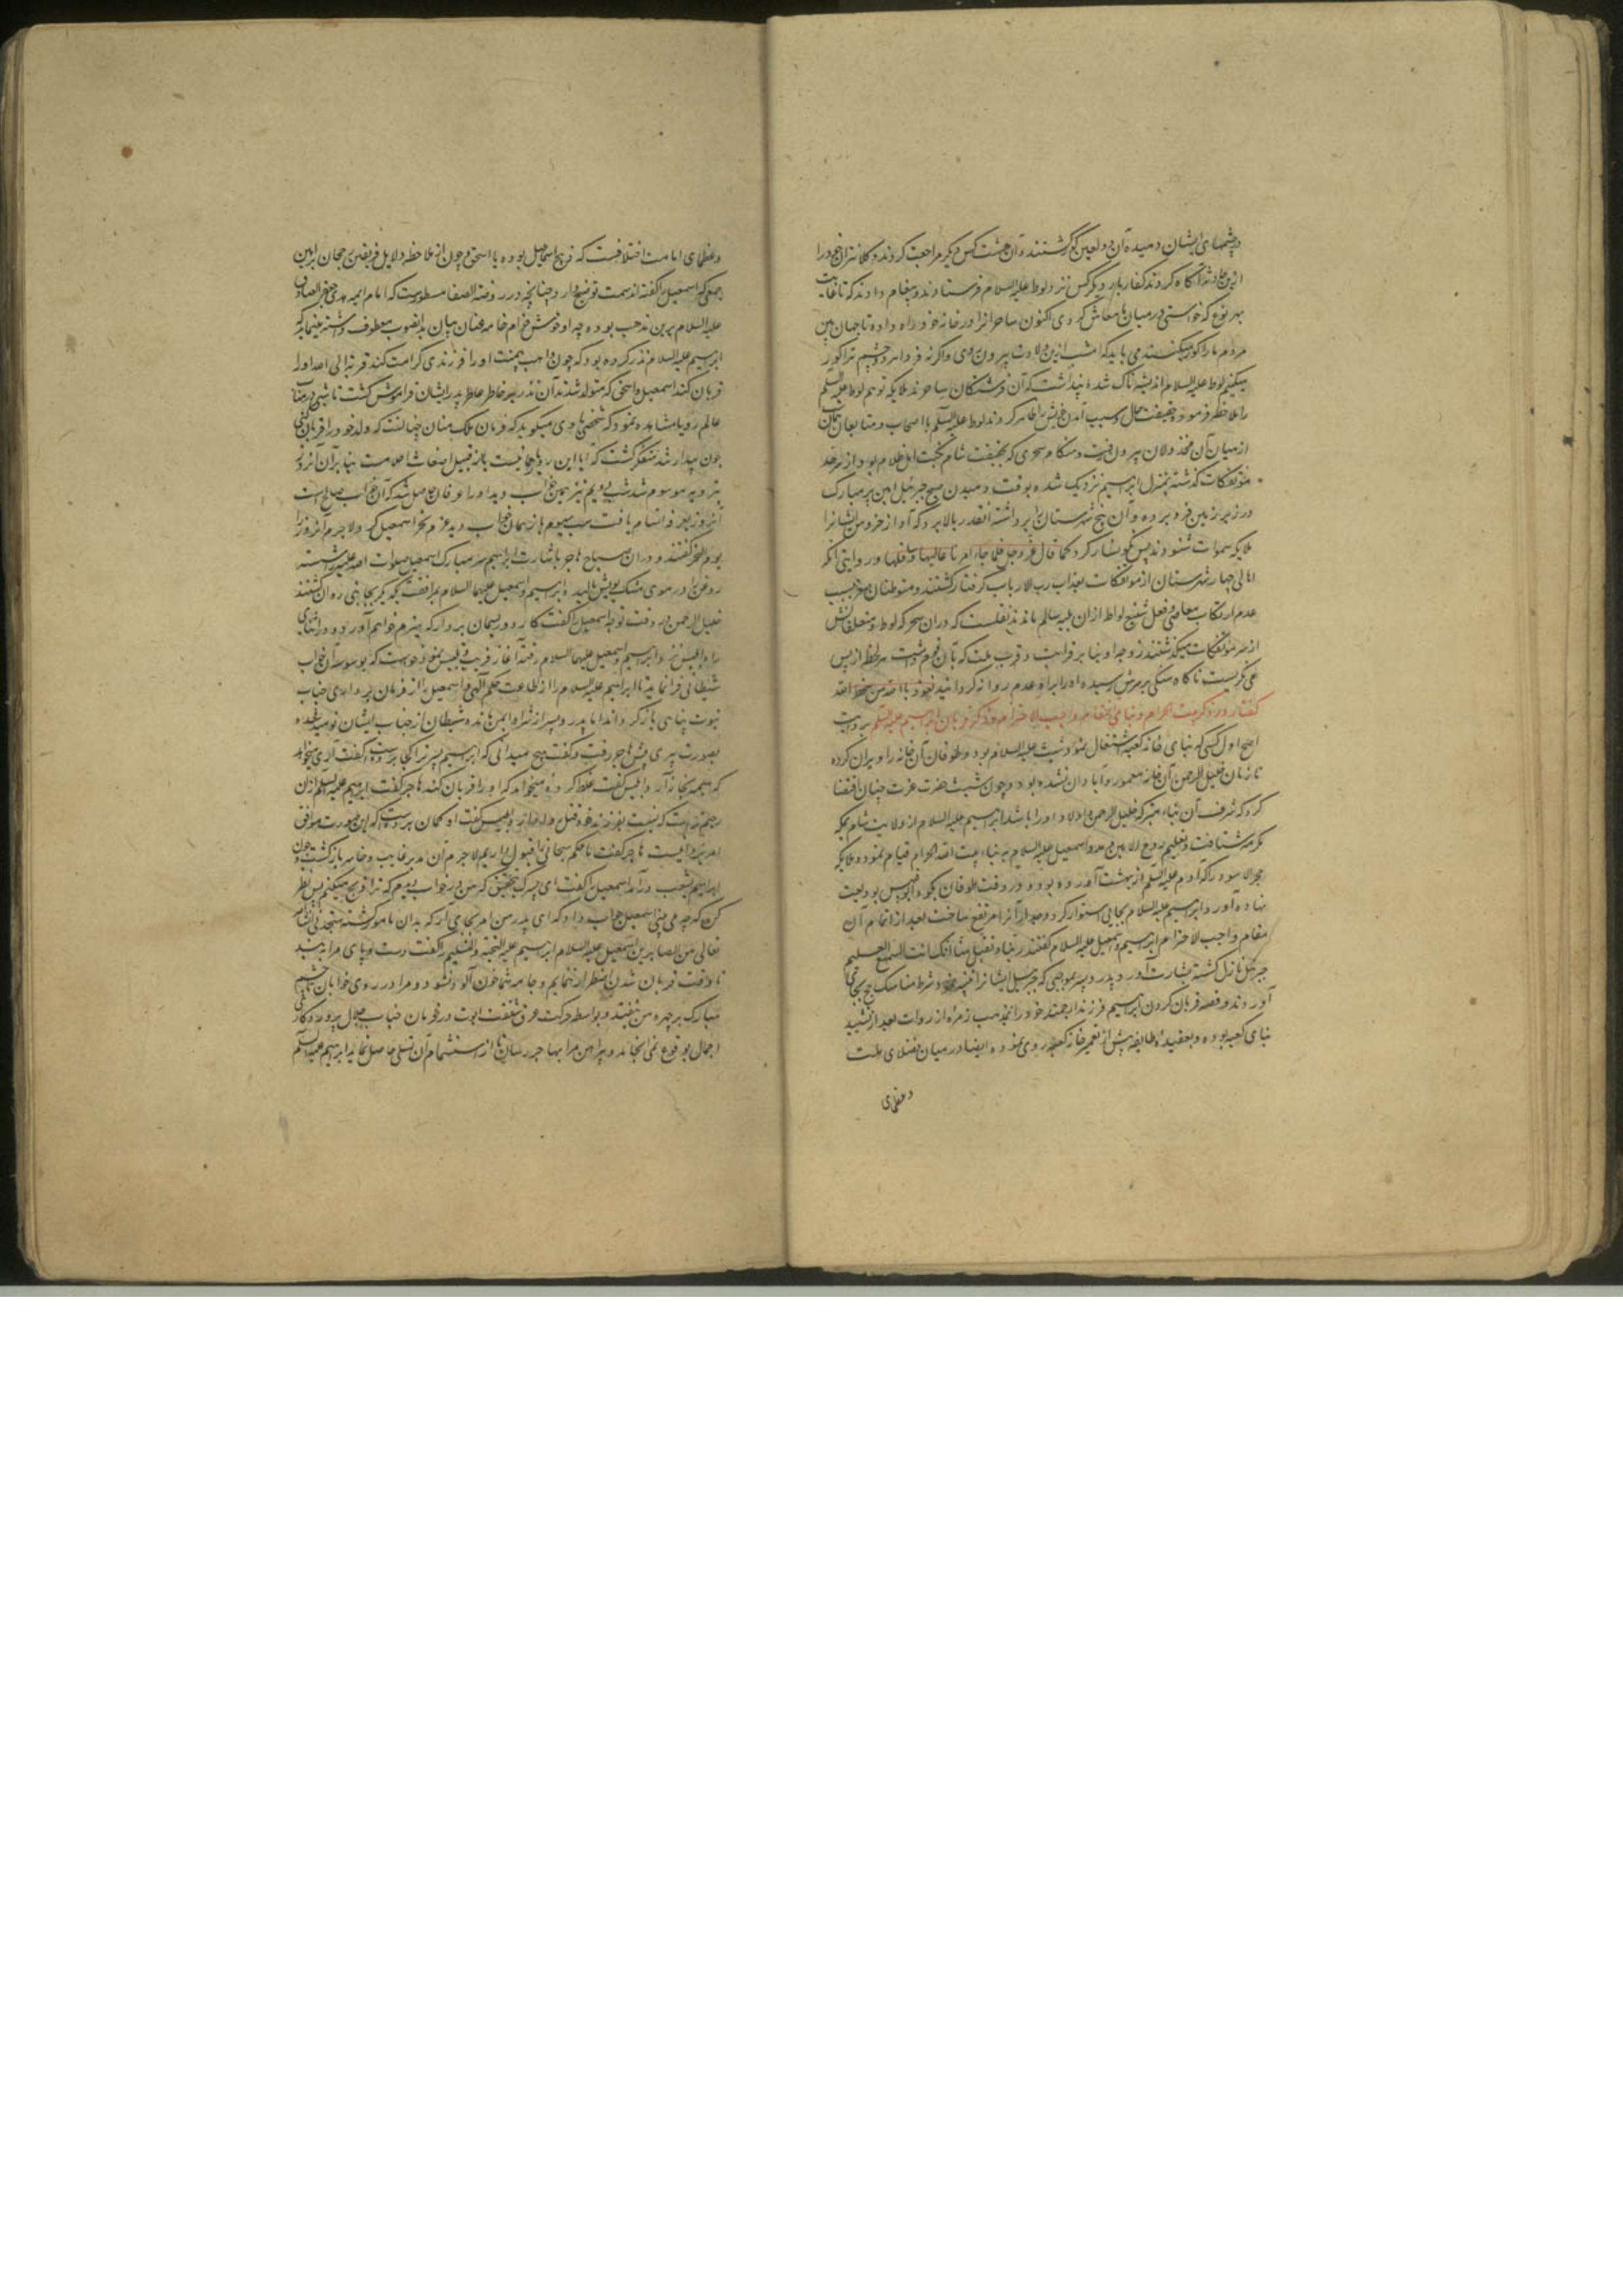 در چشمهای ایشان دمیده آن دو لعین کور گشتند و آن هشت کس دیگر مراجعت کردند و کلانتران خود را
ازین حادثه آگاه کردند کفار بار دیگر کس نزد لوط علیه السلام فرستادند و پیغام دادند که تا غایت
بهر نوع که خواستی در میان ما معاش کردی اکنون ساحرانرا در خانه خود راه داده تا جهان بین
مردم ما را کور میکنند می باید که امشب ازین ولایت بیرون روی و اگر نه فردا هر دو چشم ترا کور
میکنیم لوط علیه السلام اندیشه ناک شده پنداشت که آن فرشتگان ساحرند ملایکه توهم لوط علیه السلم
را ملاحظه فرموده حقیقت حال و سبب آمدن خویش را ظاهر کردند لوط علیه السلم با اصحاب و متابعان
از میان آن مخذولان بیرون رفت و هنگام سحری که بحقیقت شام نکبت اهل ظلام بود از سرحد
مؤتفکات گذشته بمنزل ابراهیم نزدیک شده بوقت دمیدن صبح جبرئیل امین پر مبارک
در زیر زمین فرو برده و آن پنج شهرستان را برداشته آنقدر بالا برد که آواز خروس ایشانرا
ملایکه سموات شنودند پس نگونسار کرد کما قال عز و جل فلما جاء امرنا جعلنا عالیها سافلها و در روایتی آنکه
اهالی چهار شهرستان از مؤتفکات بعذاب رب الارباب گرفتار گشتند و متوطنان صغر بسبب
عدم ارتکاب معاصی و فعل شنیع لواط از ان بلیه سالم ماندند نقلست که در ان سحر که لوط و متعلقانش
از سر مؤتفکات میگذشتند زوجه او بنا بر قرابت و قرب ملت که بآن قوم داشت هر لحظه از پس
می نگریست ناگاه سنگی بر سرش رسیده او را براه عدم روانه گردانید نعوذ بالله من سخط الله
گفتار در ذکر بیت الحرام و بنای مقام واجب الاحترام و ذکر قربان ابراهیم علیه السلم بروایت
اصح اول کسی که بنای خانه کعبه اشتغال نمود شیث علیه السلام بود و طوفان آن خانه را ویران کرده
تا زمان خلیل الرحمن آن خانه معمور و آبادان نشده بود و چون مشیت حضرت عزت چنان اقتضا
کرد که شرف آن بناء متبرک خلیل الرحمن و اولاد او را باشد ابراهیم علیه السلام از ولایت شام بمکه
مکرمه شتافت و بتعلیم روح الامین و مدد اسمعیل علیه السلام به بناء بیت الله الحرام قیام نمود و ملایکه
حجر الاسود را که آدم علیه السلم از بهشت آورده بود و در وقت طوفان بکوه ابو قبیس بودیعت
نهاده آورد و ابراهیم علیه السلام بجایی استوار کرد و جدار آنرا مرتفع ساخت بعد از اتمام آن
مقام واجب الاحترام ابراهیم و اسمعیل علیه السلام گفتند ربنا و تقبل منا انک انت السمیع العلیم
جبرئیل نازل گشته بشارت آورد و پدر و پسر بموجبی که جبرئیل ایشانرا تعلیم نمود شرط مناسک حج بجای
آوردند و قصه قربان کردن ابراهیم فرزند ارجمند خود را بمذهب زمره از روات بعد از تشیید
بنای کعبه بوده و بعقیده طایفه پیش از تعمیر خانه کعبه روی نموده ایضا در میان فضلای ملت
و عظمای
و عظمای امامت اختلافست که ذبیح اسماعیل بوده یا اسحق و چون از ملاحظه دلایل فریقین رجحان براهین
جمعی که اسمعیل را گفته اند سمت توضیح دارد چنانچه در روضة الصفا مسطورست که امام ائمه هدی جعفر الصادق
علیه السلام برین مذهب بوده چه او خوش خرام خامه عنان بیان بدانصوب معطوف داشته مینماید که
ابراهیم علیه السلام نذر کرده بود که چون واهب بیمنت او را فرزندی کرامت کند قربة الی الله او را
قربان کند اسمعیل و اسحق که متولد شدند آن نذر بر خاطر عاطر پدر ایشان فراموش گشت تا شبی در منا
عالم رویا مشاهده نمود که شخصی با وی میگوید که فرمان ملک منان چنانست که ولد خود را قربان کنی
چون بیدار شد متفکر گشت که آیا این رویا رحمانیست یا از قبیل اضغاث احلامست بنابر آن آنروز
بترویه موسوم شد شب دویم نیز همین خواب دید او را عرفان حاصل شد که آن خواب صالح است
آنروز بعرفه اتسام یافت شب سیوم باز همان خواب دید عزم نحر اسمعیل کرد لاجرم آنروز را
یوم النحر گفتند و در ان صباح هاجر باشارت ابراهیم سر مبارک اسمعیل صلوات الله علیه شسته
روغن در موی مشک بویش مالید و ابراهیم و اسمعیل علیهما السلام بمرافقت یکدیگر بجانبی روان گشتند
خلیل الرحمن در وقت توجه اسمعیل را گفت کارد و ریسمان بردار که هیزم خواهم آورد و در اثنای
راه ابلیس نزد ابراهیم و اسمعیل علیهما السلام رفته آغاز فریب و تلبیس نمود خواست که بوسوسه آن خواب
شیطانی فرا نماید تا ابراهیم علیه السلام را از طاعت حکم الهی و اسمعیل را از فرمان برداری جناب
نبوت پناهی بازگرداند اما پدر و پسر از شر او ایمن ماندند و شیطان از جناب ایشان نومید شده
بصورت پیری پیش هاجر رفت و گفت هیچ میدانی که ابراهیم پسر ترا کجا برده است گفت آری میخواهد
که هیمه بخانه آرد ابلیس گفت غلط کرده میخواهد که او را قربان کند هاجر گفت ابراهیم علیه السلم ازان
رحیم تر است که نسبت بفرزند خود قتل روا دارد ابلیس گفت او گمان برده است که این صورت موافق
امر ایزدیست هاجر گفت ما حکم سبحانی را قبول داریم لاجرم آن مدبر خایب و خاسر بازگشت و چون
ابراهیم بشعب درآمد اسمعیل را گفت ای پسرک بتحقیق که من در خواب دیدم که ترا ذبح میکنم پس نظر
کن که چه می بینی اسمعیل جواب داد که ای پدر من امر بجای آر که بدان مامور گشته ستجدنی انشاء
تعالی من الصابرین اسمعیل علیه السلام ابراهیم علیه التحیة و التسلیم را گفت دست و پای مرا ببند
تا وقت قربان شدن اضطراب ننمایم و جامه شما خون آلود نشود و مرا در روی خوابان تا چشم
مبارک بر چهره من نیفتد و بواسطه حرکت عرق شفقت ابوت در فرمان جناب جلال پروردگار
اهمال بوقوع نمی انجامد و پیراهن مرا بهاجر رسان تا از استشمام آن تسلی حاصل نماید ابراهیم علیه السلم